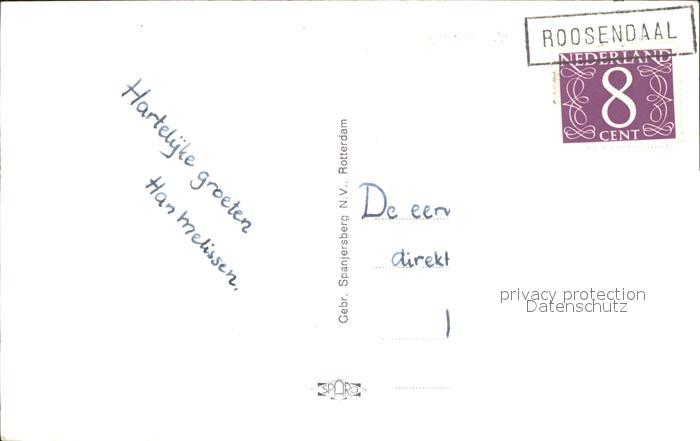 ROOSENDAAL
NEDERLAND
8
CENT
Hartelijke groeten
Han Melissen.
Gebr. Spanjersberg N.V., Rotterdam
De eerw
direkt
privacy protection
Datenschutz
SPARO